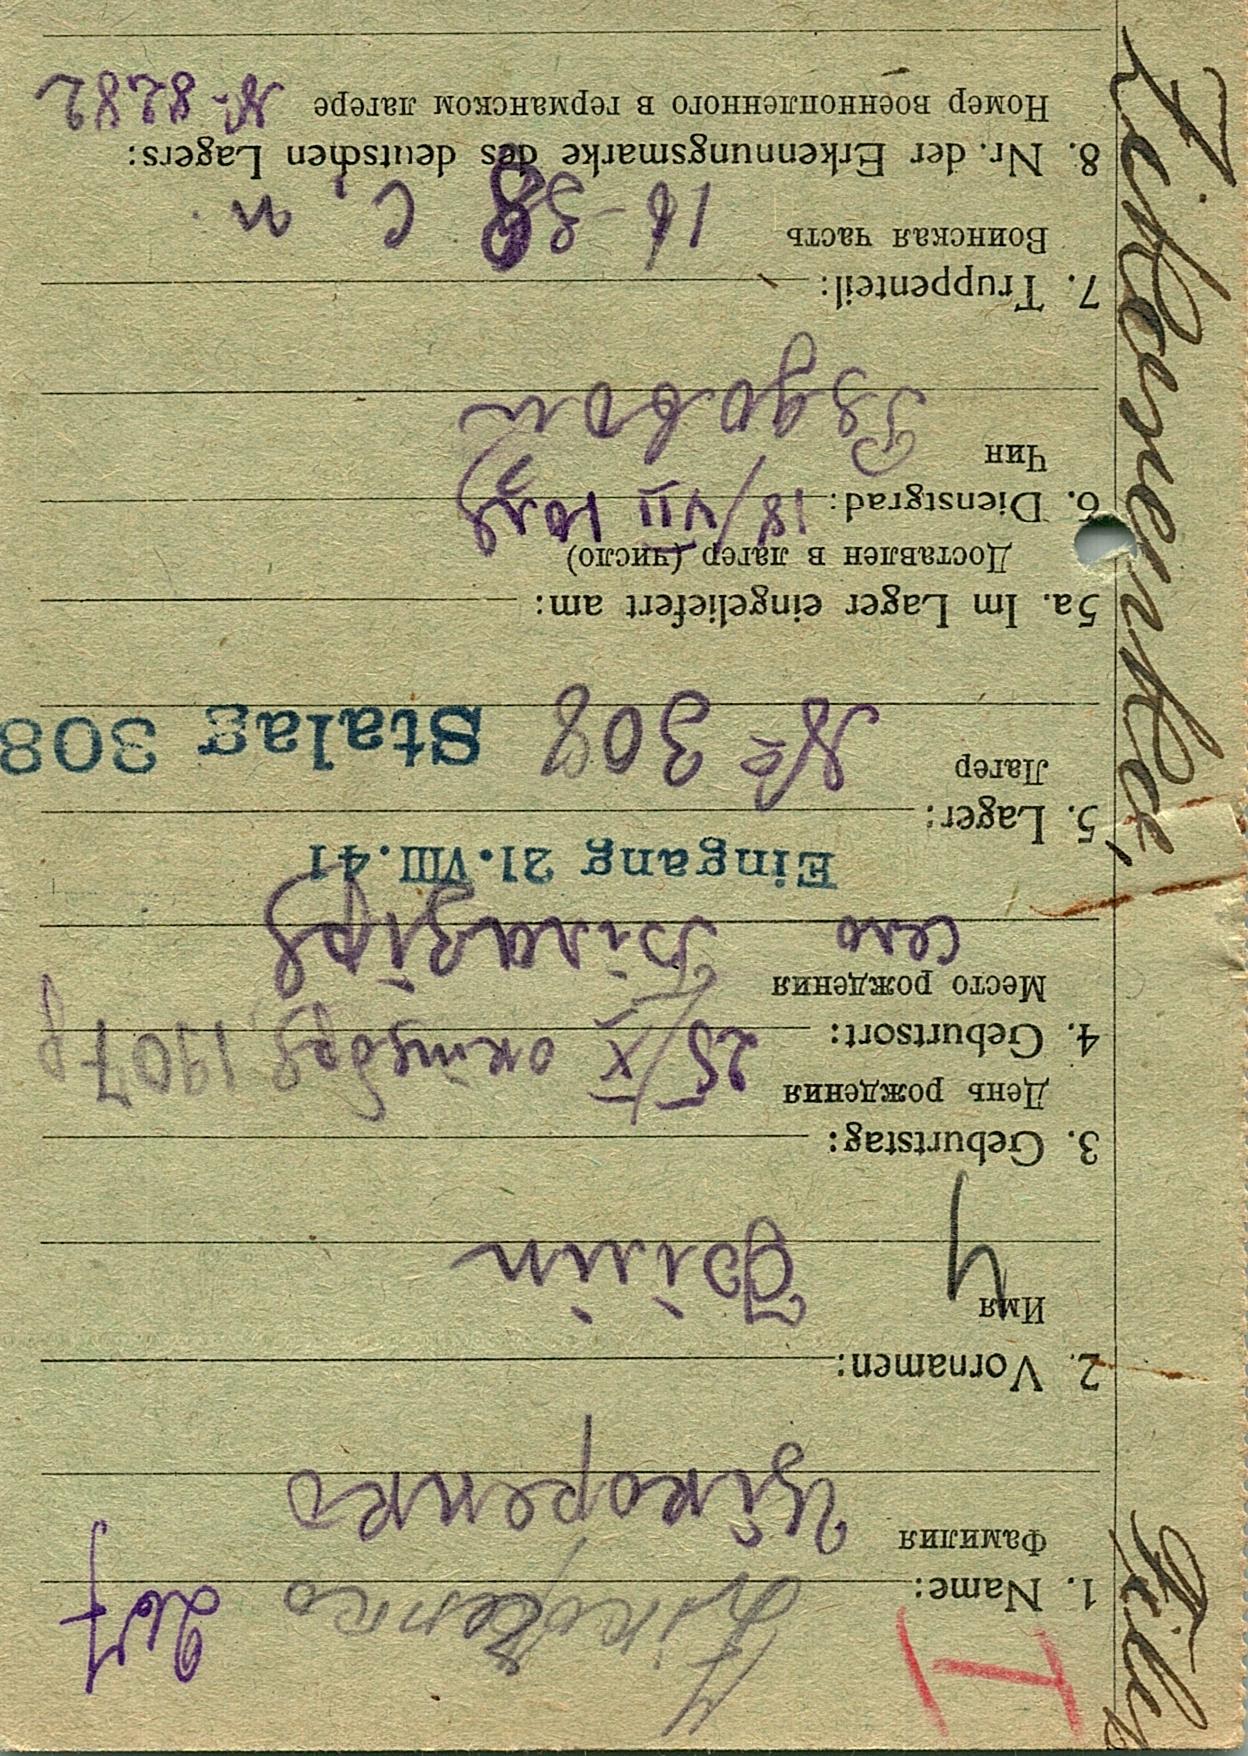 Zikorenko, Filip
1. Name:
Фамилия
Цікоренко
267
2. Vornamen:
Имя
Філіп
Ч
3. Geburtstag:
День рождения 25/X октября 1907 р
4. Geburtsort:
Место рождения
село Білагіря
Eingang 21.VIII.41
5. Lager:
Лагер № 308 Stalag 308
5a. Im Lager eingeliefert am:
Доставлен в лагер (число)
6. Dienstgrad: 18/VII
Чин Рядовои
7. Truppenteil:
Воинская часть
8. Nr. der Erkennungsmarke des deutschen Lagers:
Номер военнопленного в германском лагере № 8282